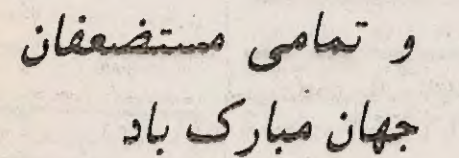 و تمامی مستضعفان
جهان مبارک باد